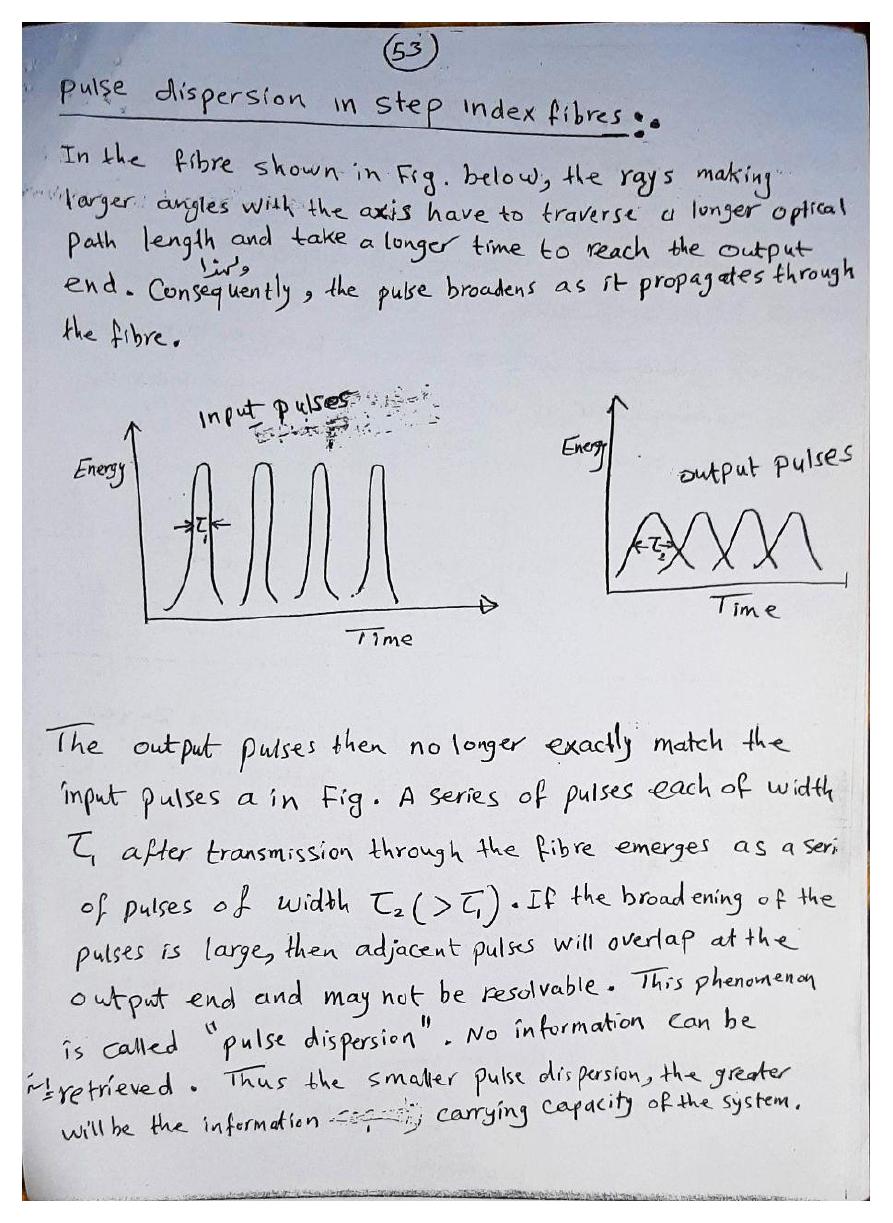 53
Pulse dispersion in step index fibres :.
In the fibre shown in Fig. below, the rays making
larger angles with the axis have to traverse a longer optical
path length and take a longer time to reach the output
ولهذا
end. Consequently, the pulse broadens as it propagates through
the fibre.
Input pulses
Energy
τ₁
Time
Energy
output pulses
τ₂
Time
The output pulses then no longer exactly match the
input pulses a in Fig. A series of pulses each of width
τ₁ after transmission through the fibre emerges as a seri
of pulses of width τ₂ (> τ₁). If the broadening of the
pulses is large, then adjacent pulses will overlap at the
output end and may not be resolvable. This phenomenon
is called "pulse dispersion". No information can be
retrieved. Thus the smaller pulse dispersion, the greater
will be the information carrying capacity of the system.